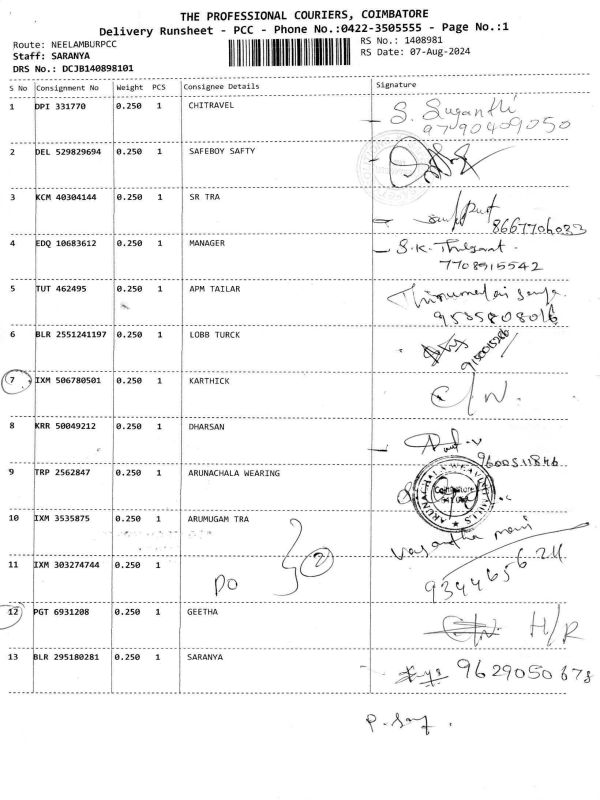 THE PROFESSIONAL COURIERS, COIMBATORE
Delivery Runsheet - PCC - Phone No.:0422-3505555 - Page No.:1
Route: NEELAMBURPCC
RS No.: 1408981
Staff: SARANYA
RS Date: 07-Aug-2024
DRS No.: DCJB140898101
S No Consignment No Weight PCS Consignee Details Signature
1 DPI 331770 0.250 1 CHITRAVEL S. Suganthi
9790409050
2 DEL 529829694 0.250 1 SAFEBOY SAFTY
3 KCM 40304144 0.250 1 SR TRA
8667706033
4 EDQ 10683612 0.250 1 MANAGER S.K.
7708915542
5 TUT 462495 0.250 1 APM TAILAR
9585808016
6 BLR 2551241197 0.250 1 LOBB TURCK
7 IXM 506780501 0.250 1 KARTHICK C/N.
8 KRR 50049212 0.250 1 DHARSAN
9600511846
9 TRP 2562847 0.250 1 ARUNACHALA WEARING
Coimbatore
10 IXM 3535875 0.250 1 ARUMUGAM TRA
Vasandha mani
11 IXM 303274744 0.250 1 DO 2
9344656 211
12 PGT 6931208 0.250 1 GEETHA C/N. H/R
13 BLR 295180281 0.250 1 SARANYA 9629050678